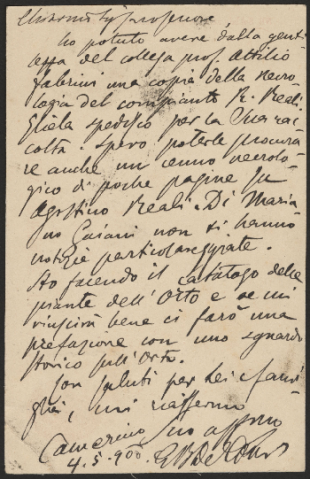 Chiarissimo Sig. Professore
ho potuto avere dalla genti
lezza del collega prof. Attilio
Fabrini una copia della necro
logia del compianto R. Reali
Gliela spedisco per la Sua rac
colta. Spero poterle procura
re anche un cenno necrolo
gico di poche pagine su
Agostino Reali. Di Maria
no Gajani non si hanno
notizie particolareggiate.
Sto facendo il catalogo delle
piante dell'Orto e se mi
riuscirà bene ci farò una
prefazione con uno sguardo
storico sull'Orto.
Con saluti per Lei e fami
glia, mi raffermo
Camerino suo affmo
4.5.900. E. B. De Toni